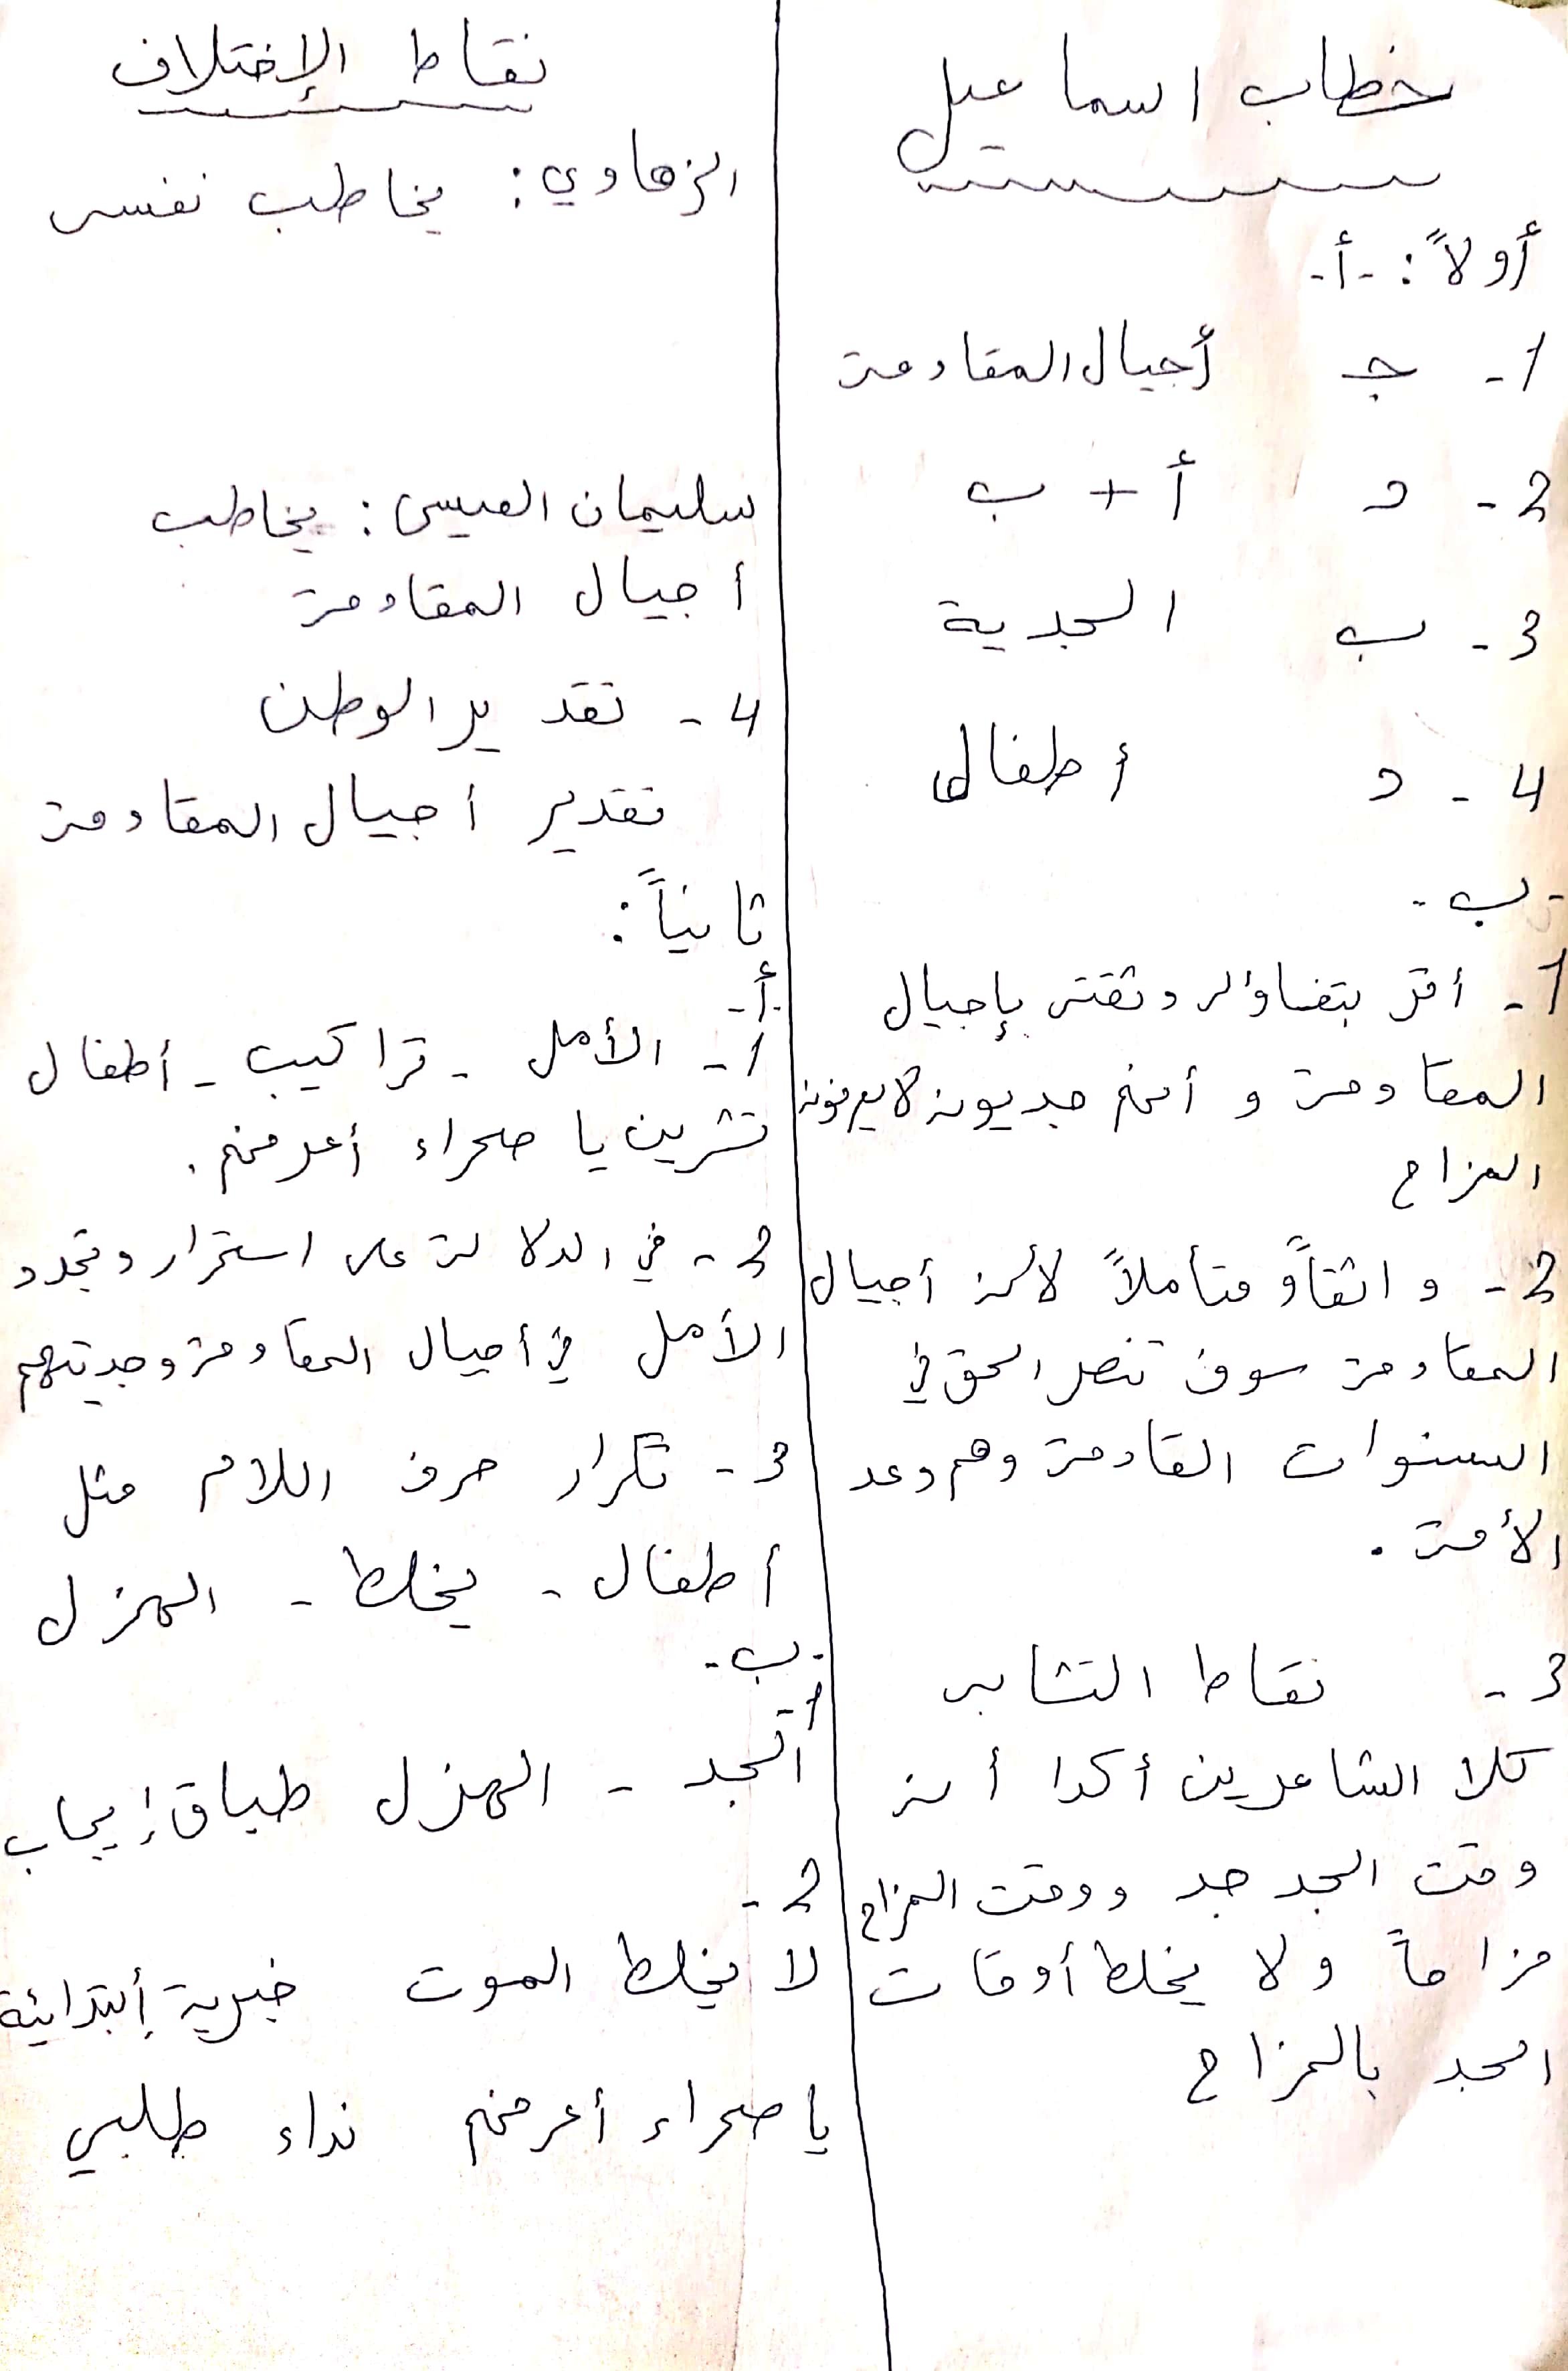 خطاب اسماعيل
أولاً: -أ-
1- جـ أجيال المقاومة
2- د أ + ب
3- ب الجدية
4- د أطفال
-ب-
1- أقر بتفاؤله وثقته بإجيال
المقاومة و أنهم جديون لا يعرفون
المزاح
2- واثقاً و متأملاً لأن أجيال
المقاومة سوف تنصر الحق في
السنوات القادمة وهم وعد
الأمة.
3- نقاط التشابه
كلا الشاعرين أكدا أن
وقت الجد جد ووقت المزاح
مزاحاً ولا يخلط أوقات
الجد بالمزاح
نقاط الإختلاف
الزهاوي: يخاطب نفسه
سليمان العيسى: يخاطب
أجيال المقاومة
4- تقدير الوطن
تقدير أجيال المقاومة
ثانياً:
-أ-
1- الأمل - تراكيب - أطفال
تشرين يا صحراء أعرفهم.
2- في الدلالة على استمرار وتجدد
الأمل في أجيال المقاومة وجديتهم
3- تكرار حرف اللام مثل
أطفال - يخلط - الهزل
-ب-
1-
الجد - الهزل طباق إيجاب
2-
لا يخلط الموت خبرية إبتدائية
يا صحراء أعرفهم نداء طلبي